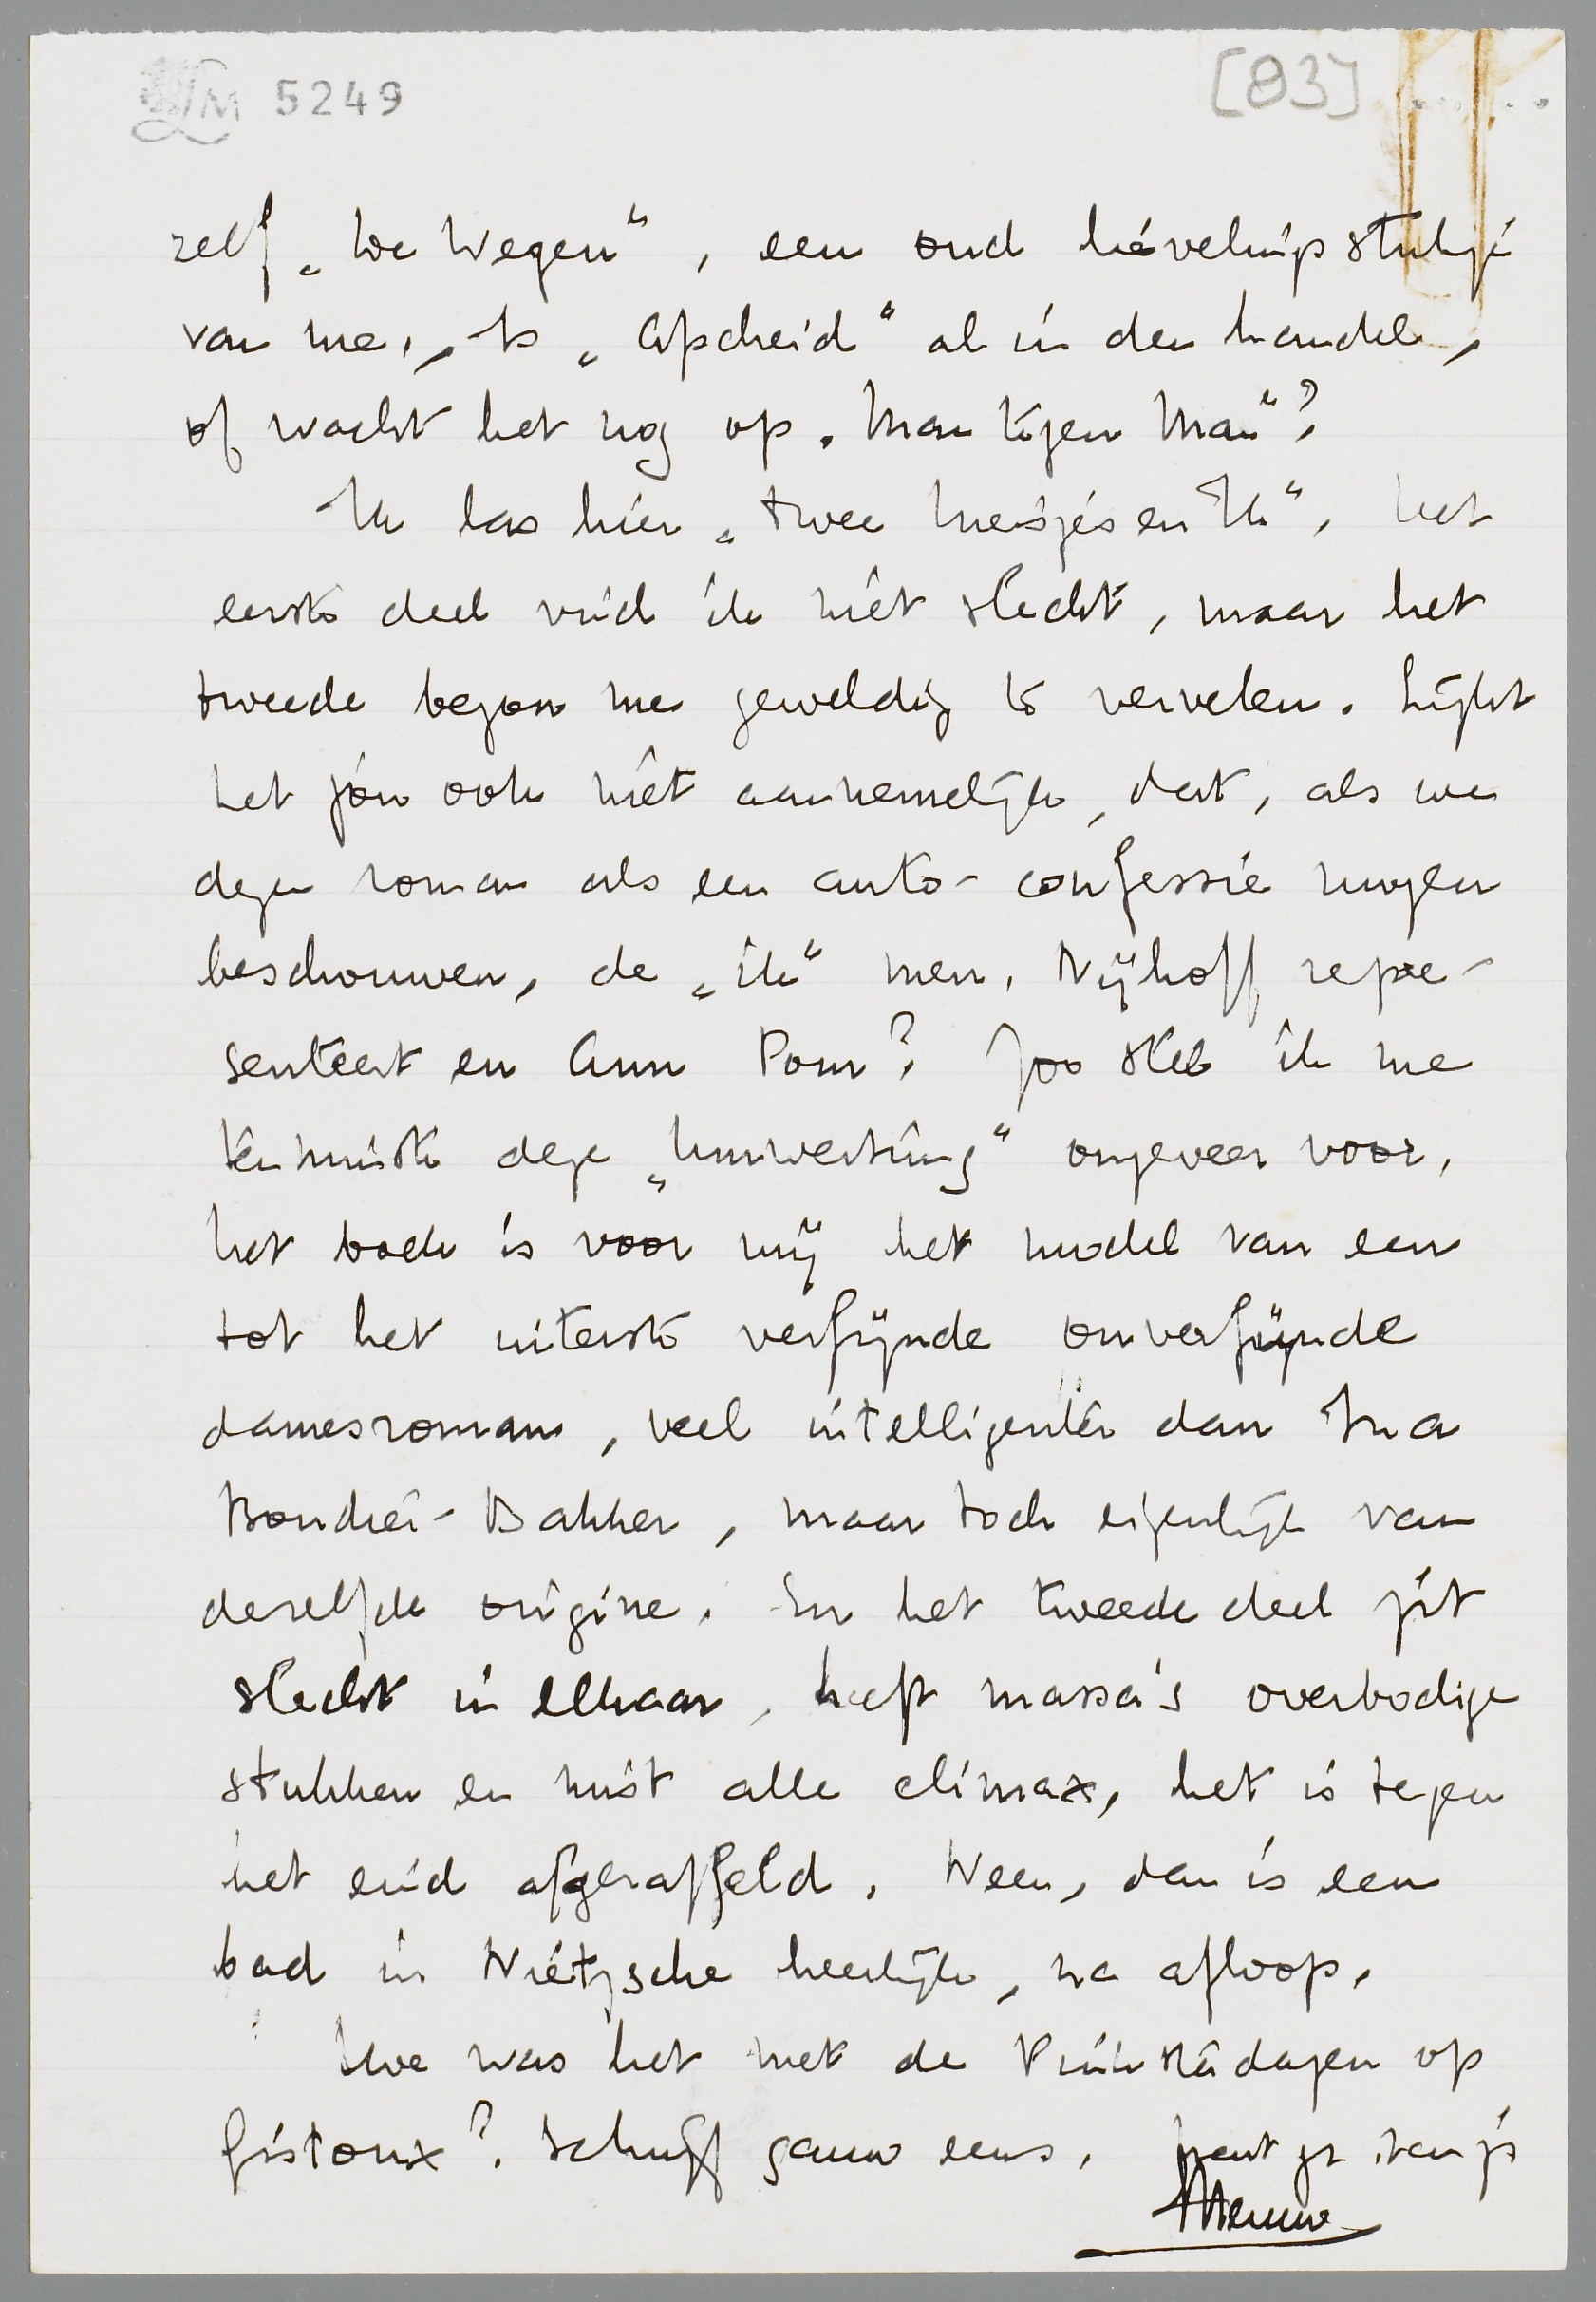 LM 5249
[83]
zelf „Twee Wegen", een oud lievelingsstukje
van me. Is „Afscheid" al in den handel,
of wacht het nog op „Man tegen Man"?
Ik las hier „Twee Meisjes en Ik". Het
eerste deel vind ik niet slecht, maar het
tweede begon me geweldig te vervelen. Lijkt
het jou ook niet aannemelijk, dat, als we
dezen roman als een auto-confessie mogen
beschouwen, de „ik" mevr. Nijhoff repre-
senteert en Ann Pom? Zoo stel ik me
tenminste deze „Umwertung" ongeveer voor.
Het boek is voor mij het model van een
tot het uiterste verfijnde onverfijnde
damesroman, veel intelligenter dan Ina
Boudier-Bakker, maar toch eigenlijk van
dezelfde origine. En het tweede deel zit
slecht in elkaar, heeft massa's overbodige
stukken en mist alle climax, het is tegen
het eind afgeraffeld. Neen, dan is een
bad in Nietzsche heerlijk, na afloop.
Hoe was het met de Pinksterdagen op
Gistoux? Schrijf gauw eens. hart. gr. van je
Menno